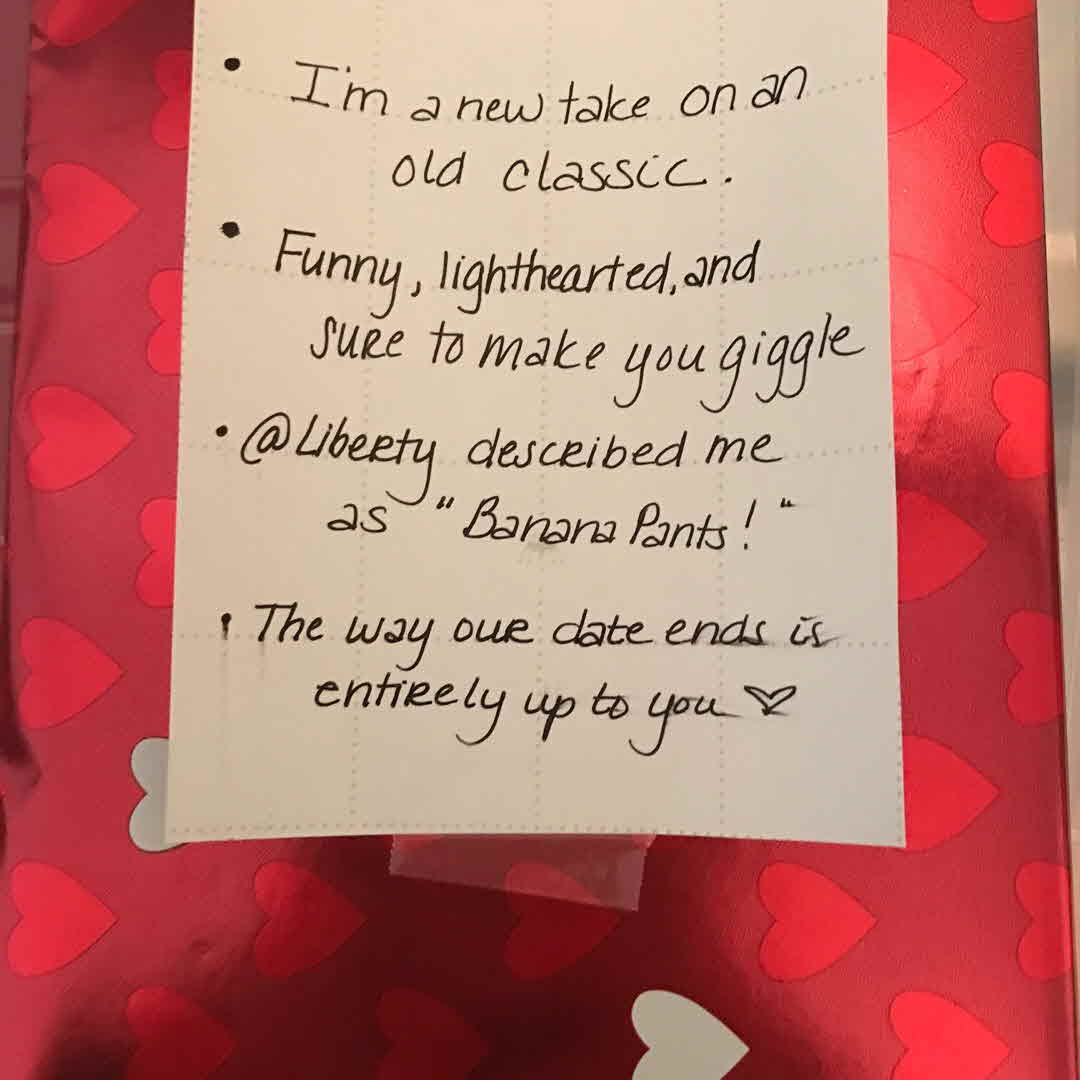 • I'm a new take on an
old classic.
• Funny, lighthearted, and
sure to make you giggle
• @Liberty described me
as "Banana Pants!"
• The way our date ends is
entirely up to you ♡